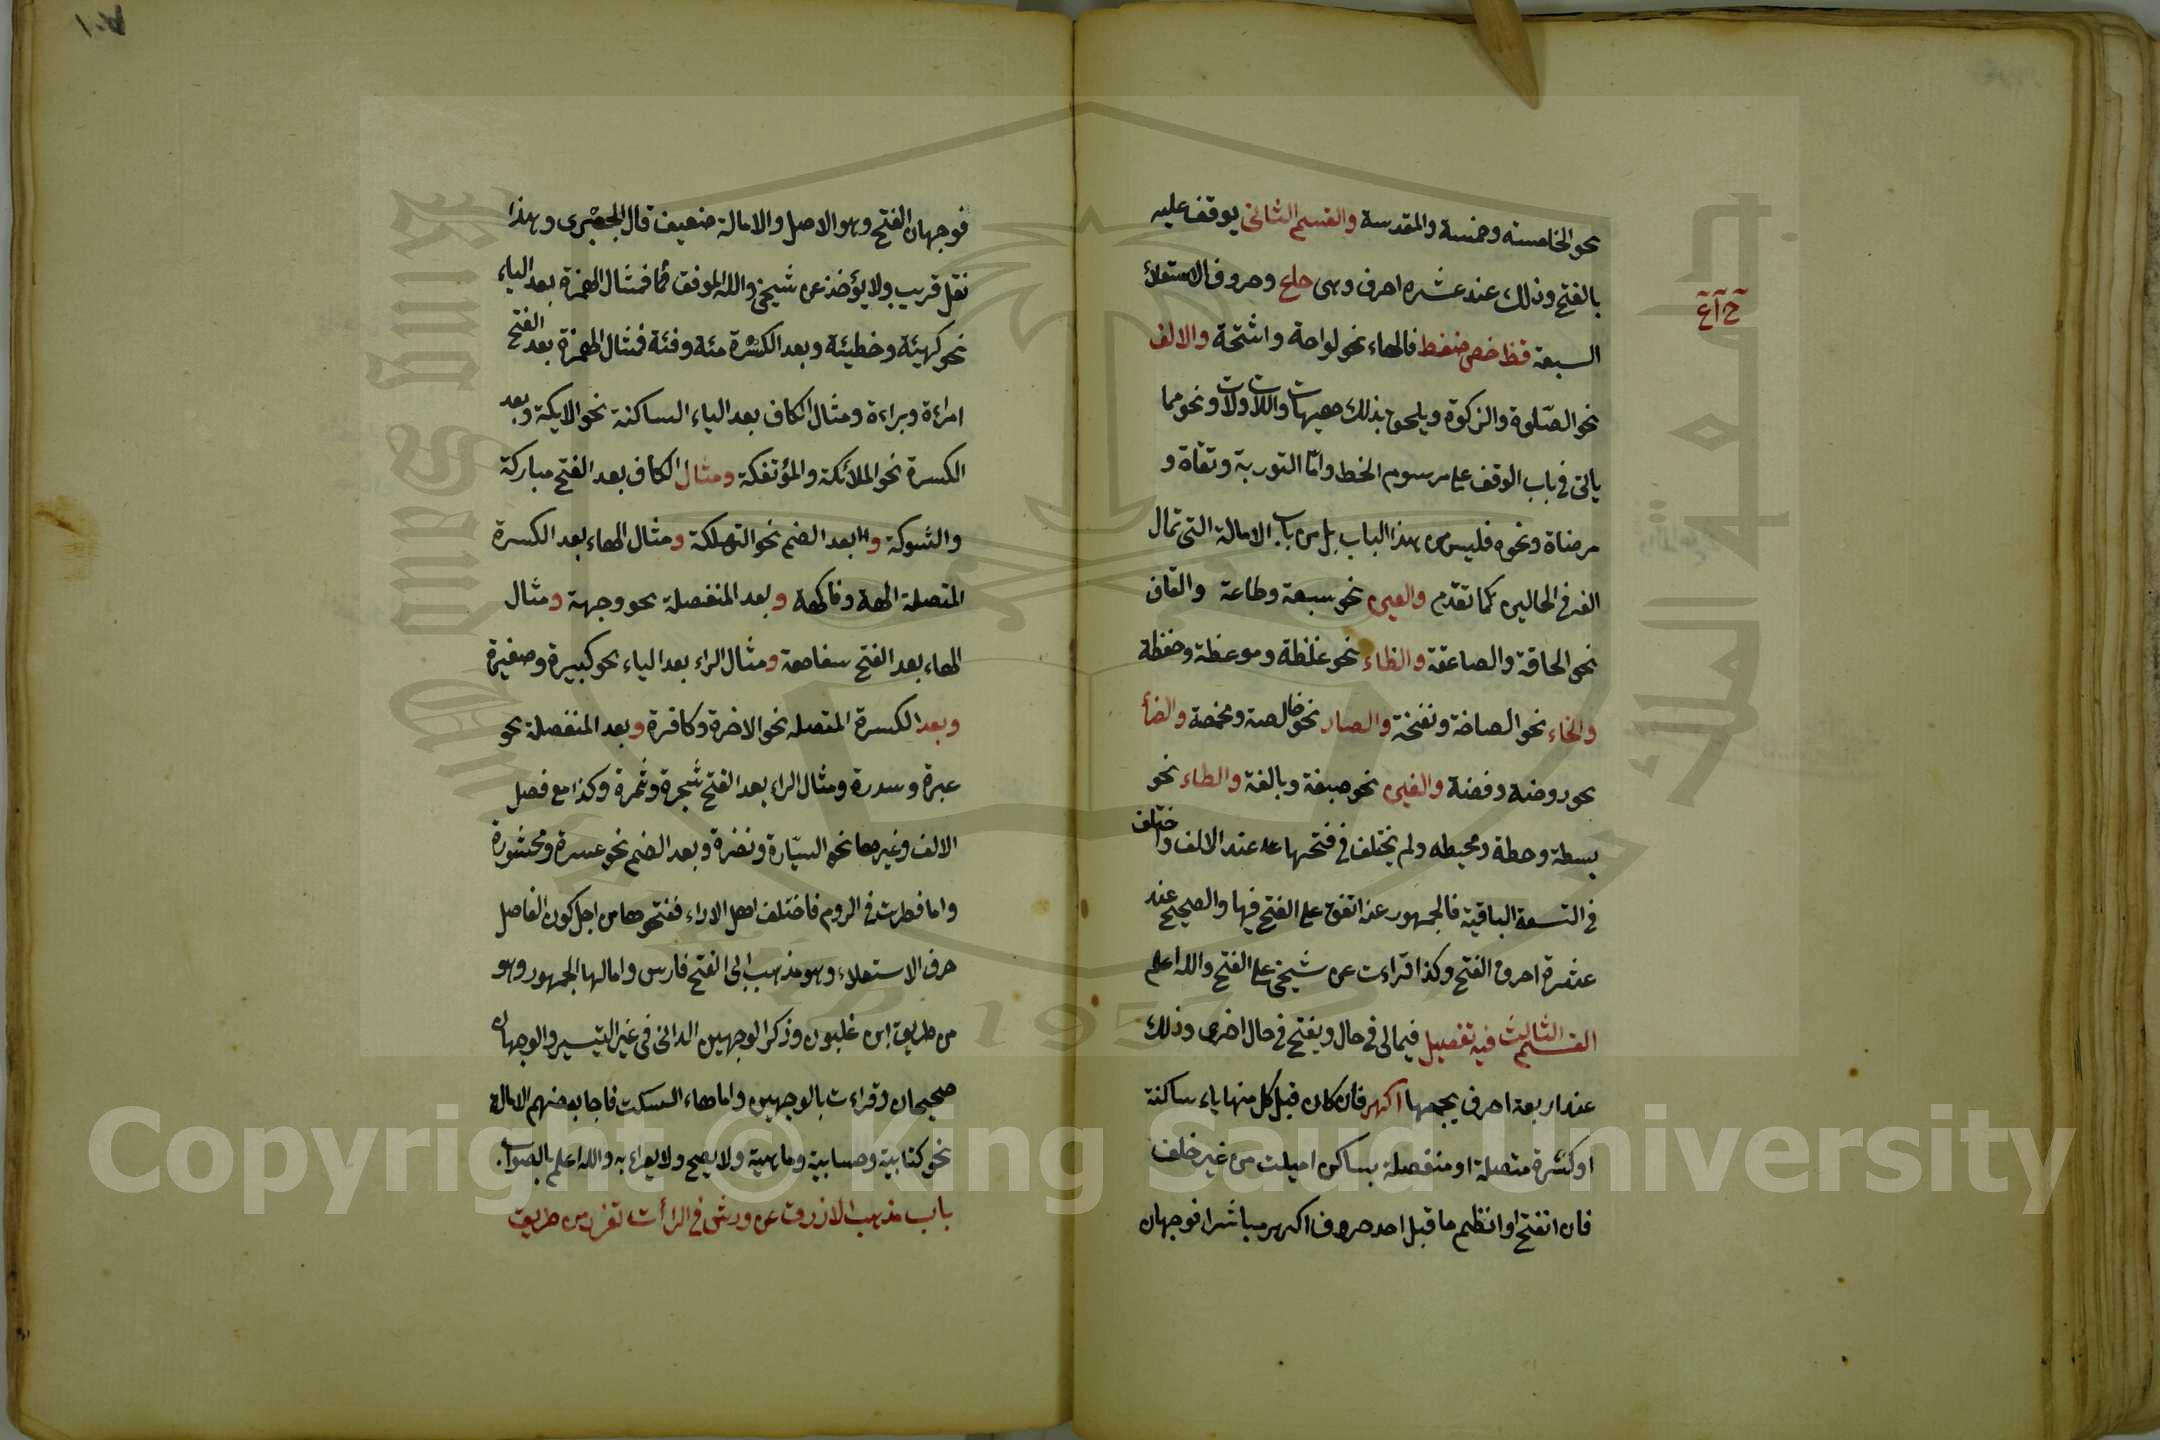 نحو الخامسة وخمسة والمقدسة والقسم الثانى يوقف عليه
بالفتح وذلك عند عشره احرف وهى حاع وحروف الاستعلاء
ح آ ع
السبعة قظ خص ضغط فالحاء نحو لواحة واشحة والالف
نحو الصلوة والزكوة ويلحق بذلك هيهات واللات ولات ونحو مما
ياتى فى باب الوقف على مرسوم الخط واما التورية وتقاة و
مرضاة ونحوه فليس من هذا الباب بل من باب الامالة التى تمال
الفه فى الحالين كما تقدم والعين نحو سبعة وطاعة والقاف
نحو الحاقة والصاعقة والظاء نحو غلظة وموعظة وحفظة
والخاء نحو الصاخة ونفخة والصاد نحو خالصة ومخمصة والضا
نحو روضة وفضة والغين نحو صبغة وبالغة والطاء نحو
بسطة وحطة ومحيطه ولم يختلف فى فتحها عند الالف واختلف
فى التسعة الباقية فالجمهور عنه اتفق على الفتح فيها والصحيح عند
عشرة احرف الفتح وكذا قراءت عن شيخى على الفتح والله اعلم
القسم الثالث فيه تفصيل فيمالى فى حال ويفتح فى حال اخرى وذلك
عند اربعة احرف يجمعها اكهر فان كان قبل كل منها ياء ساكنة
او كسرة متصلة او منفصلة بساكن اميلت من غير خلف
فان انفتح او انظم ما قبل احد حروف اكهر مباشرا فوجهان
فوجهان الفتح وهو الاصل والامالة ضعيف قال الجعبرى وهذا
نقل قريب ولا يؤخذ عن شيخى والله الموفق فمثال الهمزة بعد الياء
نحو كهيئة وخطيئة وبعد الكسرة مئة وفئة فمثال الهمزة بعد الفتح
امراءة وبراءة ومثال الكاف بعد الياء الساكنة نحو الايكة وبعد
الكسرة نحو الملائكة والمؤتفكة ومثال الكاف بعد الفتح مباركة
والشوكة وا بعد الضم نحو التهلكة ومثال الهاء بعد الكسرة
المتصلة الهة وفاكهة وبعد المنفصلة نحو وجهة ومثال
الهاء بعد الفتح سفاهة ومثال الراء بعد الياء نحو كبيرة وصغيرة
وبعد الكسرة المتصله نحو الاخرة وكافرة وبعد المنفصلة نحو
عبرة وسدرة ومثال الراء بعد الفتح شجرة وثمرة وكذا مع فصل
الالف وغيرها نحو السيارة ونضرة وبعد الضم نحو عسرة ومحشورة
واما فطرت فى الروم فاختلف اهل الاداء ففتحوها من اجل كون الفاصل
حرف الاستعلاء وهو مذهب ابى الفتح فارس وامالها الجمهور وهو
من طريق ابن غلبون وذكر الوجهين الدانى فى غير التيسير والوجهان
صحيحان وقراءت بالوجهين واما هاء السكت فاجا بعضهم الامالة
نحو كتابية وحسابية وماهية ولا يصح ولا يقراء به والله اعلم بالصواب.
باب مذهب الازرق عن ورش فى الراءت تفرد من طريق
Copyright © King Saud University
1957